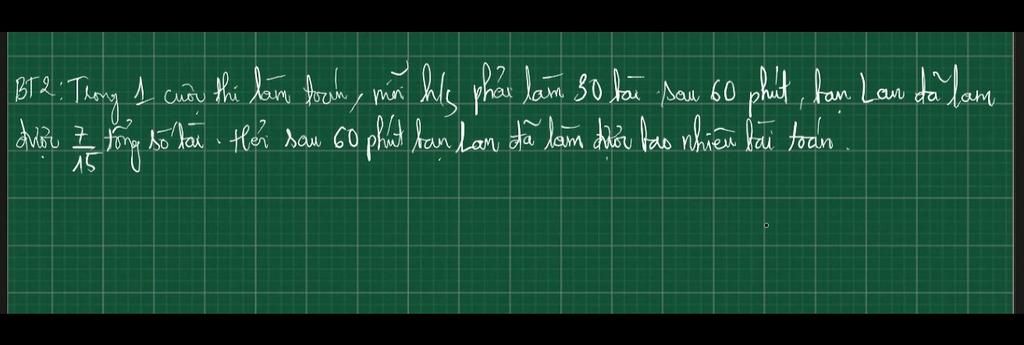 BT2: Trong 1 cuộc thi làm toán, mỗi h/s phải làm 30 bài sau 60 phút, bạn Lan đã làm
được 7/15 tổng số bài. Hỏi sau 60 phút bạn Lan đã làm được bao nhiêu bài toán.